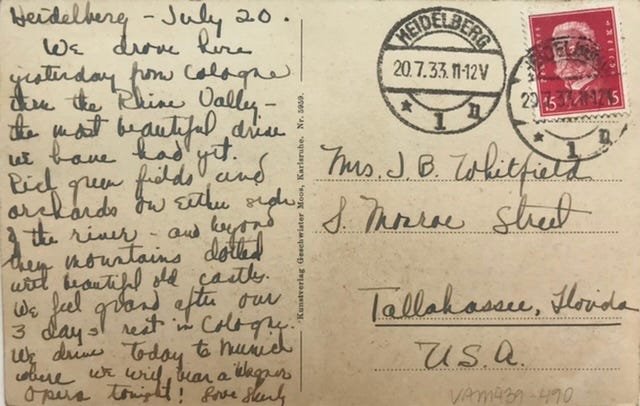 Heidelberg - July 20.
We drove here
yesterday from Cologne
thru the Rhine Valley -
the most beautiful drive
we have had yet.
Rich green fields and
orchards on either side
of the river - and beyond
them mountains dotted
with beautiful old castles.
We feel grand after our
3 days rest in Cologne.
We drive today to Munich
where we will hear a Wagner
Opera tonight! Love
Kunstverlag Geschwister Moos, Karlsruhe. Nr. 5959.
HEIDELBERG
20.7.33.11-12V
* 1 n
HEIDELBERG
20.7.33.11-12V
* 1 n
15 15
Mrs. J. B. Whitfield
S. Monroe Street
Tallahassee, Florida
U.S.A.
VAM439-490